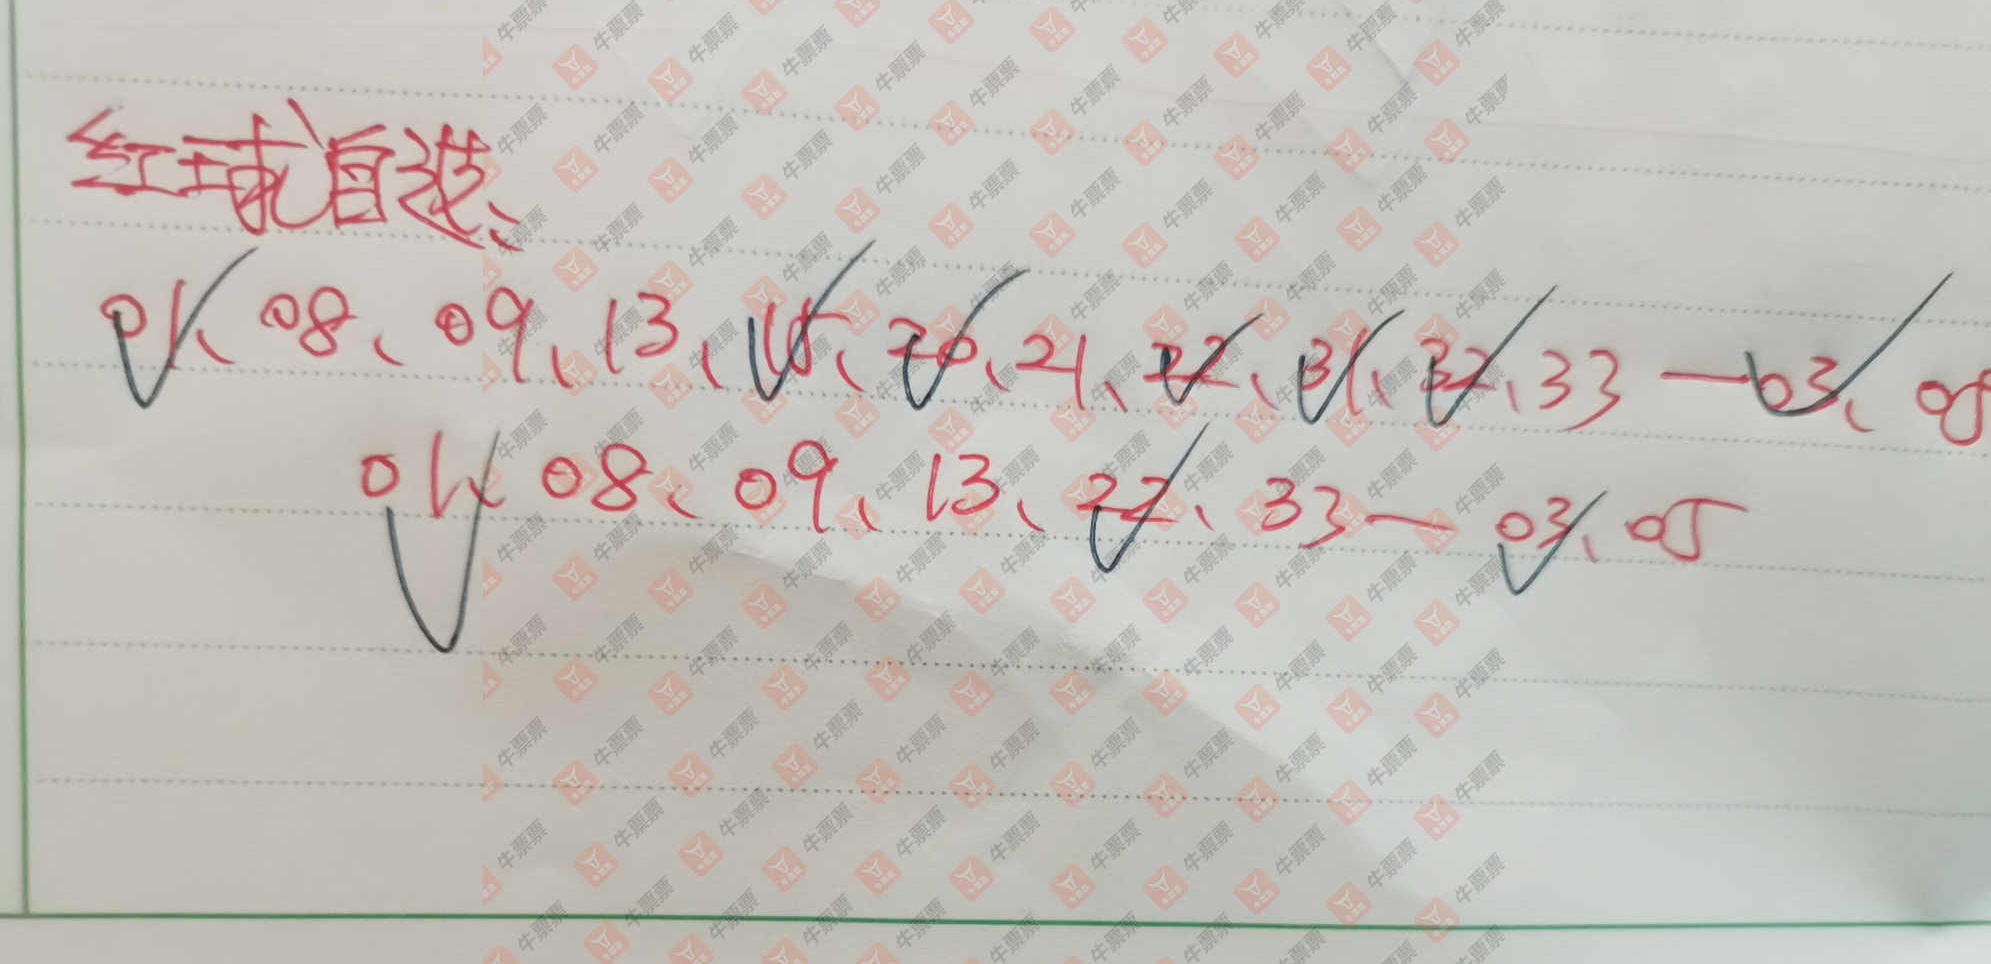 红球自选、
01、08、09、13、15、20、21、22、31、32、33—03、05
01、08、09、13、22、33—03、05
牛票票